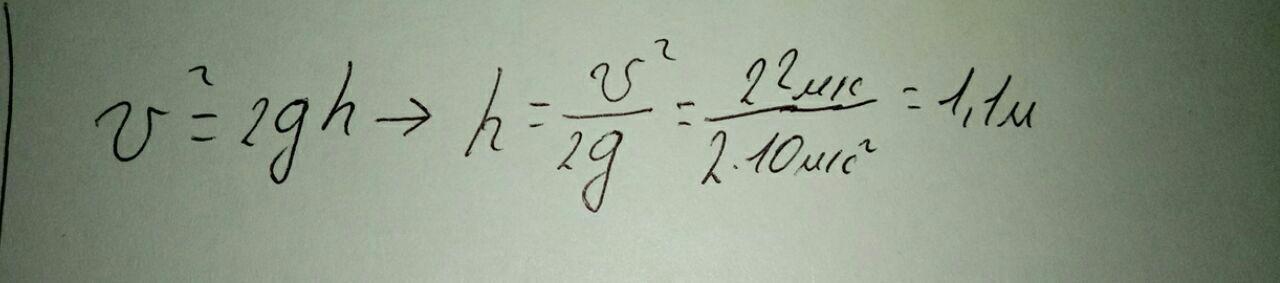 v² = 2gh → h = v²/2g = 22м/с / 2·10м/с² = 1,1м